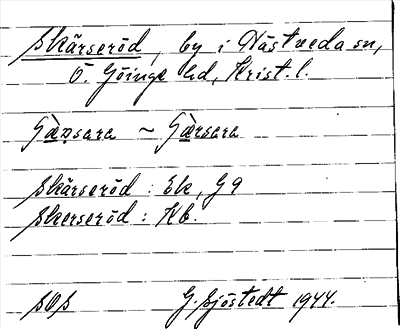 Skärseröd, by i Hästveda sn,
Ö. Göinge hd, Krist. l.
Skärseröd : Ek, G9
Skerseröd : Kb.
SOS G. Sjöstedt 1944.